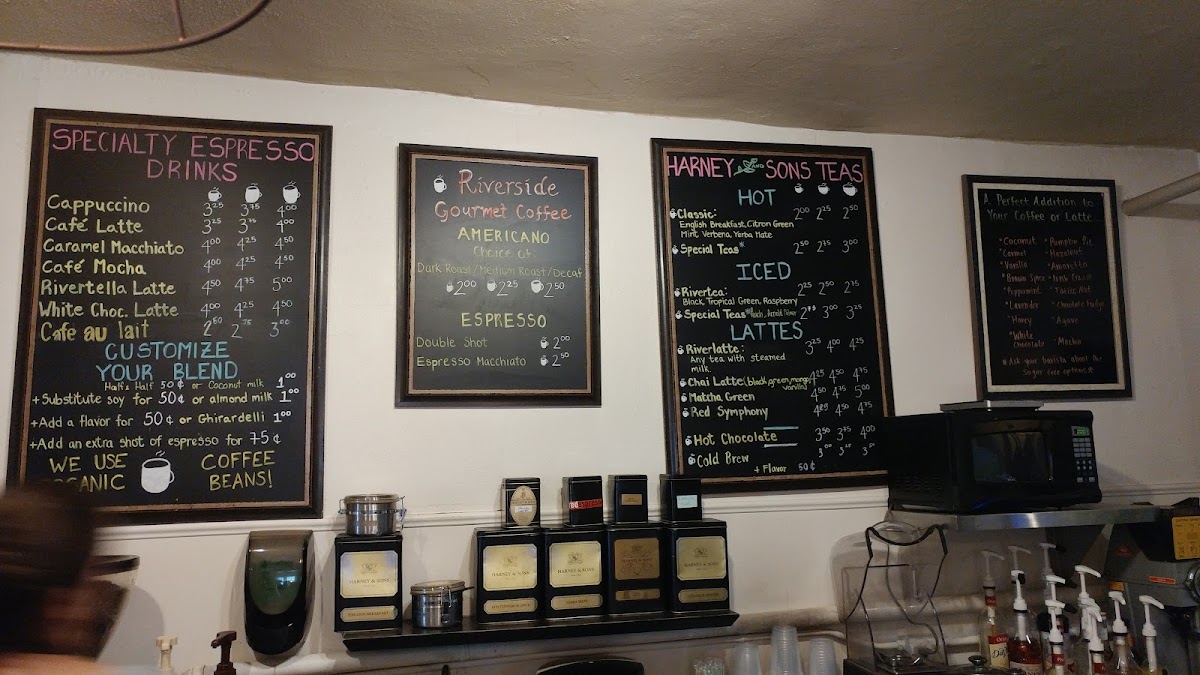 SPECIALTY ESPRESSO
DRINKS
Cappuccino 3.25 3.75 4.00
Café Latte 3.25 3.75 4.00
Caramel Macchiato 4.00 4.25 4.50
Café Mocha 4.00 4.25 4.50
Rivertella Latte 4.50 4.75 5.00
White Choc. Latte 4.00 4.25 4.50
Café au lait 2.50 2.75 3.00
CUSTOMIZE
YOUR BLEND
Half & Half 50¢ or Coconut milk 1.00
+Substitute soy for 50¢ or almond milk 1.00
+Add a flavor for 50¢ or Ghirardelli 1.00
+Add an extra shot of espresso for 75¢
WE USE COFFEE
BEANS!
Riverside
Gourmet Coffee
AMERICANO
Choice of:
Dark Roast/Medium Roast/Decaf
2.00 2.25 2.50
ESPRESSO
Double Shot 2.00
Espresso Macchiato 2.50
HARNEY AND SONS TEAS
HOT
Classic: 2.00 2.25 2.50
English Breakfast, Citron Green
Mint Verbena, Yerba Mate
Special Teas* 2.50 2.75 3.00
ICED
Rivertea: 2.25 2.50 2.75
Black, Tropical Green, Raspberry
Special Teas* 2.75 3.00 3.25
LATTES
Riverlatte: 3.25 4.00 4.25
Any tea with steamed
milk.
Chai Latte (black, green, mango, vanilla) 4.25 4.50 4.75
Matcha Green 4.50 4.75 5.00
Red Symphony 4.25 4.50 4.75
Hot Chocolate 3.50 3.75 4.00
Cold Brew
+ Flavor 50¢
A Perfect Addition to
Your Coffee or Latte...
*Coconut *Pumpkin Pie
*Caramel *Hazelnut
*Vanilla *Amaretto
*Brown Spice *Irish Cream
*Peppermint
*Lavender *Chocolate Fudge
*Honey *Agave
*White
Chocolate *Mocha
*Ask your barista about our
Sugar free options*
HARNEY & SONS
HARNEY & SONS
HARNEY & SONS
HARNEY & SONS
HARNEY & SONS